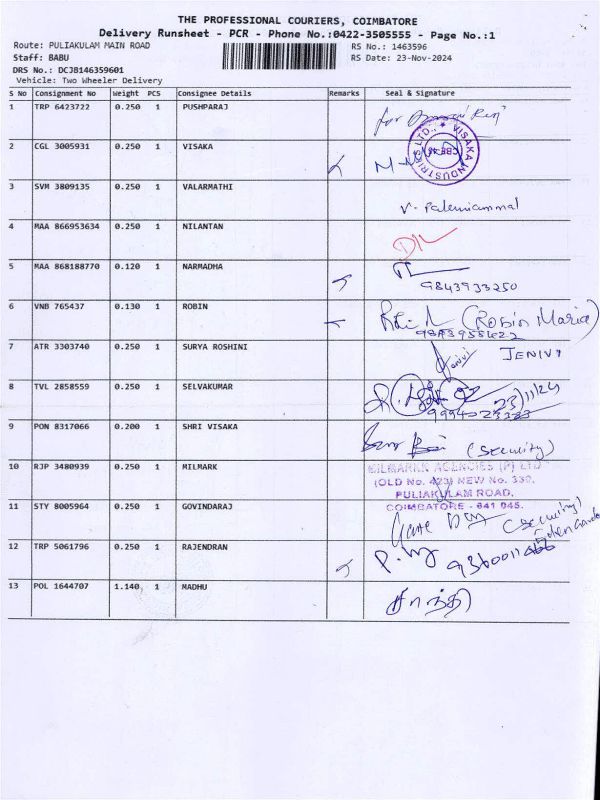 THE PROFESSIONAL COURIERS, COIMBATORE
Delivery Runsheet - PCR - Phone No.:0422-3505555 - Page No.:1
Route: PULIAKULAM MAIN ROAD RS No.: 1463596
Staff: BABU RS Date: 23-Nov-2024
DRS No.: DCJB146359601
Vehicle: Two Wheeler Delivery
S No Consignment No Weight PCS Consignee Details Remarks Seal & Signature
1 TRP 6423722 0.250 1 PUSHPARAJ for
2 CGL 3005931 0.250 1 VISAKA
VISAKA INDUSTRIES LTD., CBE-45
3 SVM 3809135 0.250 1 VALARMATHI
V. Palaniammal
4 MAA 866953634 0.250 1 NILANTAN
5 MAA 868188770 0.120 1 NARMADHA
9843933250
6 VNB 765437 0.130 1 ROBIN (Robin Maria)
7 ATR 3303740 0.250 1 SURYA ROSHINI JENIVI
8 TVL 2858559 0.250 1 SELVAKUMAR 23/11/24
9 PON 8317066 0.200 1 SHRI VISAKA (Security)
10 RJP 3480939 0.250 1 MILMARK MILMARK AGENCIES (P) LTD
(OLD No. 423) NEW No. 330,
PULIAKULAM ROAD,
COIMBATORE - 641 045.
11 STY 8005964 0.250 1 GOVINDARAJ (Security)
12 TRP 5061796 0.250 1 RAJENDRAN
13 POL 1644707 1.140 1 MADHU சாந்தி